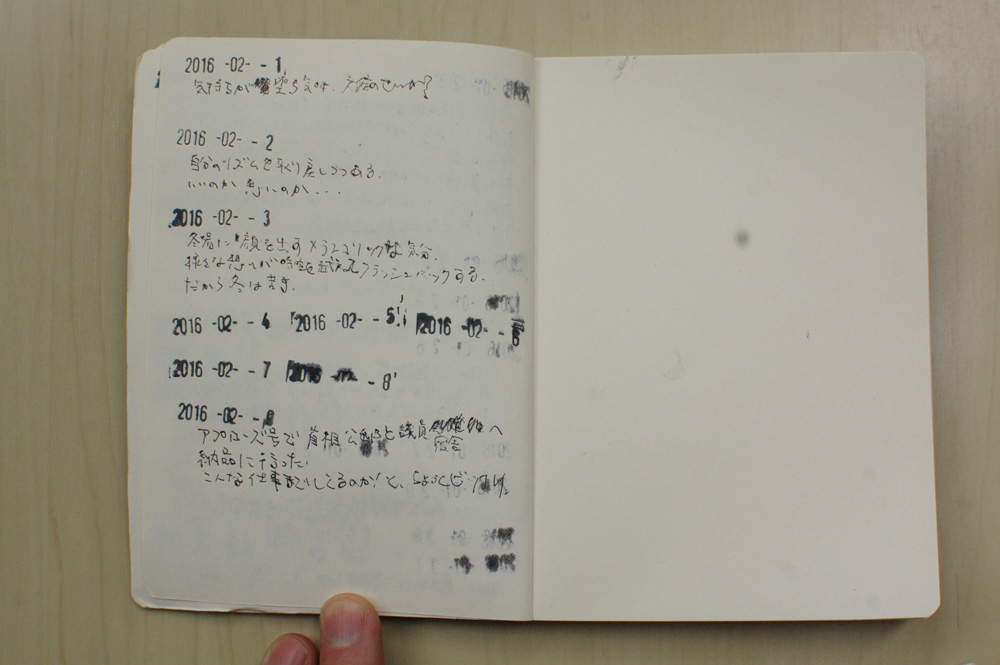 2016 -02- - 1
気持ちが 気味. のせいか?
2016 -02- - 2
自分のリズムを取り戻しつつある.
いいのか 悪いのか...
2016 -02- - 3
冬場に顔を出すメランコリックな気分.
様々な想いが時空を超えフラッシュバックする.
だから冬は苦手.
2016 -02- - 4 2016 -02- - 5 2016 -02- - 6
2016 -02- - 7 2016 -02- - 8
2016 -02- - 8
アプローズ号で 首相公邸と議員宿舎へ
納品に行った.
こんな仕事までしてるのか!と、ちょっと